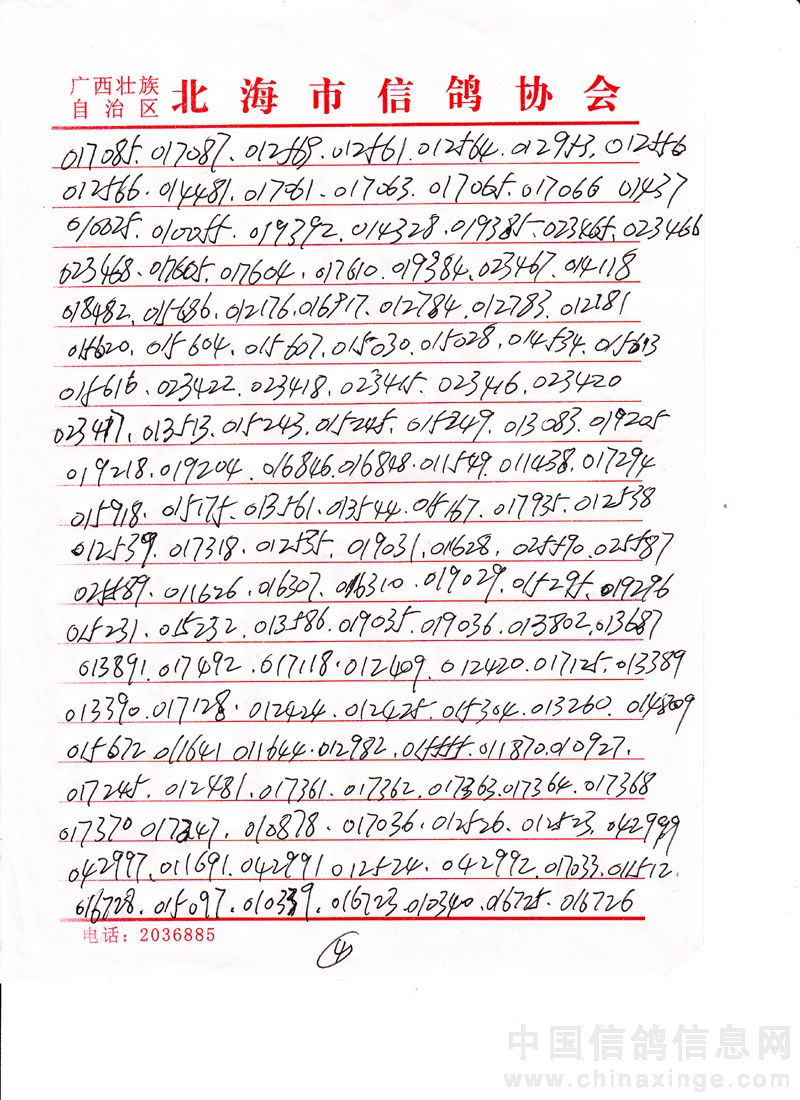 广西壮族
自治区
北海市信鸽协会
017085.017087.012569.012561.012564.012953.012556
012566.014481.017061.017063.017065.017066 01437
010025.010055.019392.014328.019385.023465.023466
023468.017605.017604.017610.019384.023467.014118
018482.015686.012176.016917.012784.012783.012181
015620.015604.015607.015030.015028.014534.015613
015616.023422.023418.023415.023416.023420
023417.013513.015243.015245.015249.013083.019205
019218.019204.016846.016848.011549.011438.017294
015918.015175.013561.013544.015167.017935.012538
012539.017318.012535.019031.01628.025590.025587
025589.011626.016307.016310.019029.015295.019296
015231.015232.013586.019035.019036.013802.013687
013891.017492.017118.012409.012420.017125.013389
013390.017128.012424.012425.015304.013260.014809
015672 011641 011644.012982.015555.011870.010927.
017245.012481.017361.017362.017363.017364.017368
017370 017247.010878.017036.012526.012523.042999
042997.011691.042991 012524.042992.017033.011512.
016728.015097.010339.016723.010340.016725.016726
电话：2036885
④
中国信鸽信息网
www.chinaxinge.com